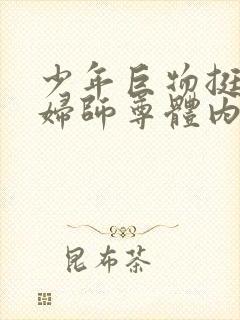 少年巨物挺
婦師尊體內
昆布茶